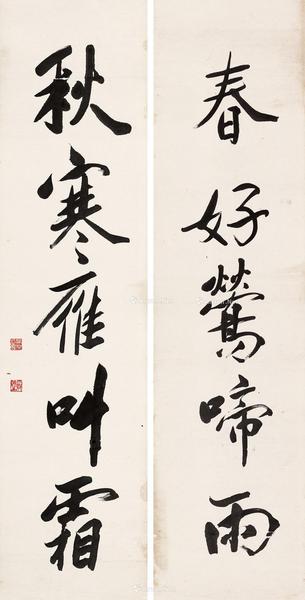 春好鶯啼雨
秋寒雁叫霜